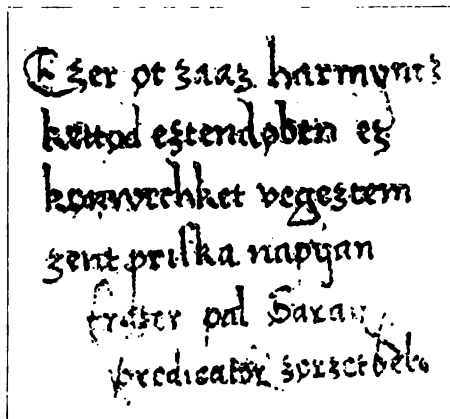 Ezer øt zaaz harmyncz
kettød eztendøben ez
konyvechket vegeztem
zent priska napyan
frater pal
predicator